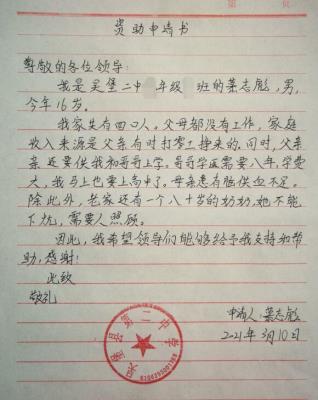 第 页
资助申请书
尊敬的各位领导:
我是吴堡二中 年级 班的慕志彪,男,
今年16岁。
我家共有四口人。父母都没有工作,家庭
收入来源是父亲有时打零工挣来的,同时,父亲
亲还要供我和哥哥上学。哥哥学医需要八年,学费
大,我马上也要上高中了。母亲患有脑供血不足。
除此外,老家还有一个八十岁的奶奶,她不能
下炕,需要人照顾。
因此,我希望领导们能够给予我支持和帮
助,感谢!
此致
敬礼
申请人:慕志彪
2021年3月10日
吴堡县第二中学